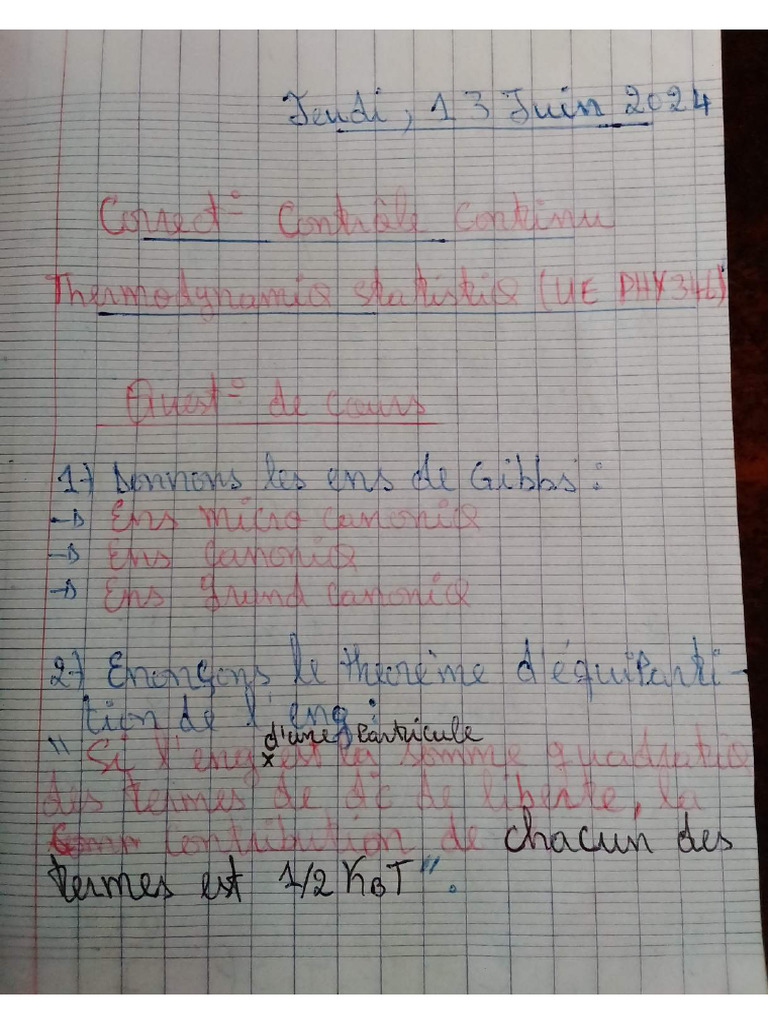 Jeudi, 13 Juin 2024
Correct° Contrôle Continu
Thermodynamiq statistiq (UE PHY346)
Quest° de cours
1-) Donnons les ens de Gibbs :
→ Ens micro canoniq
→ Ens canoniq
→ Ens grand canoniq
2-) Enonçons le théorème d'équiparti-
tion de l'eng :
d'une particule
" Si l'eng x est la somme quadratiq
des termes de d° de liberté, la
contribution de chacun des
termes est 1/2 KBT ".